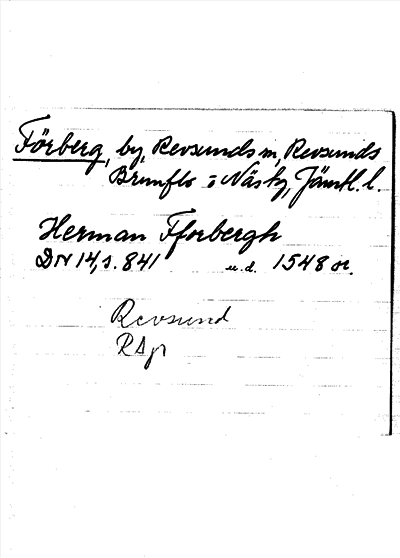 Förberg, by, Revsunds sn, Revsunds
Brunflo o Näs tg, Jämtl. l.
Herman Fforbergh
DN 14, s. 841 u.d. 1548 or.
Revsund